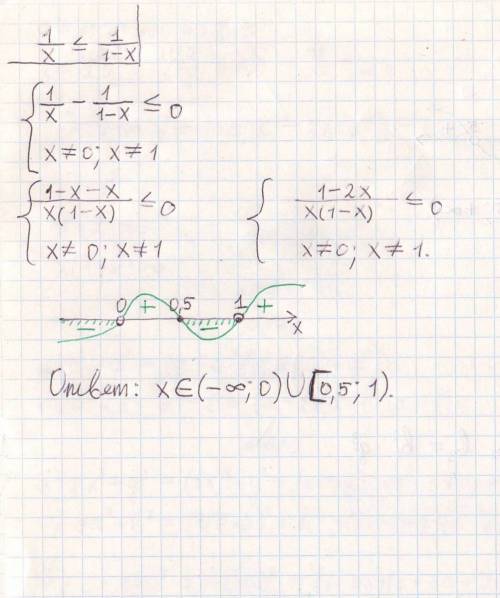 1/x ≤ 1/(1-x)
{ 1/x - 1/(1-x) ≤ 0
x≠0; x≠1
{ (1-x-x)/(x(1-x)) ≤ 0
x≠0; x≠1
{ (1-2x)/(x(1-x)) ≤ 0
x≠0; x≠1.
0 + 0,5 1 +
- - x
Ответ: x∈(-∞; 0)∪[0,5; 1).